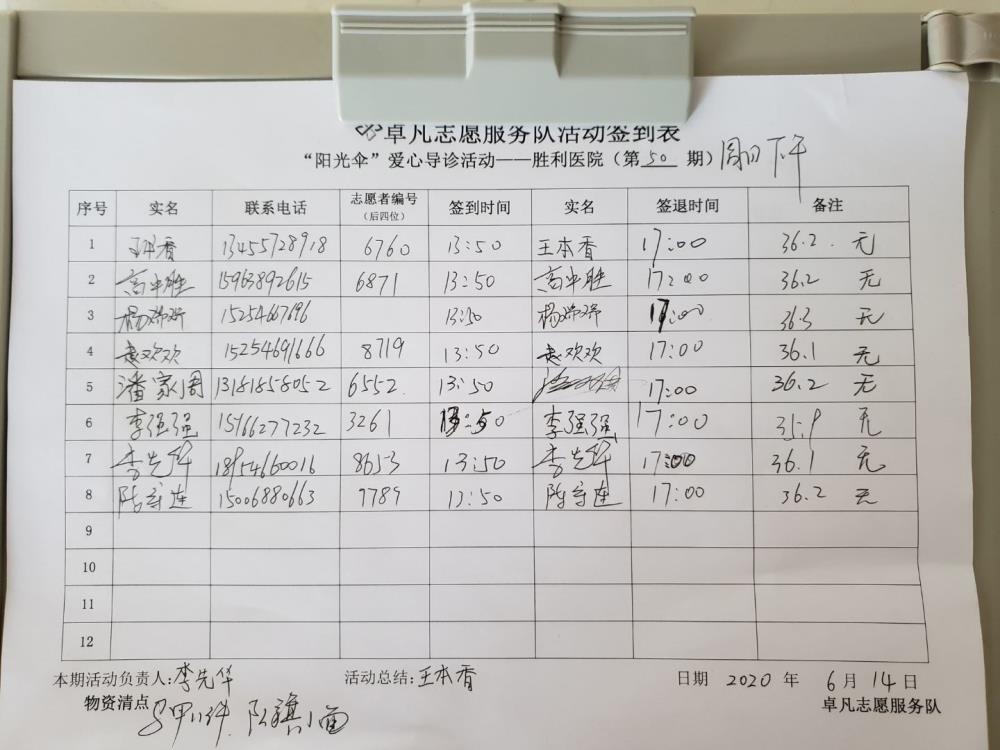 卓凡志愿服务队活动签到表
“阳光伞”爱心导诊活动——胜利医院（第 50 期）周日下午
序号 实名 联系电话 志愿者编号（后四位） 签到时间 实名 签退时间 备注
1 王本香 13455728918 6760 13:50 王本香 17:00 36.2 无
2 高中胜 15963892615 6871 13:50 高中胜 17:00 36.2 无
3 杨 15254667696 13:50 杨 17:00 36.3 无
4 赵欢欢 15254691666 8719 13:50 赵欢欢 17:00 36.1 无
5 潘家周 13181858052 6552 13:50 17:00 36.2 无
6 李强强 15966277232 3261 13:50 李强强 17:00 35.9 无
7 李先华 18954660016 8653 13:50 李先华 17:00 36.1 无
8 陈守连 15006880663 7789 13:50 陈守连 17:00 36.2 无
9
10
11
12
本期活动负责人:李先华 活动总结:王本香 日期 2020 年 6 月 14 日
物资清点 马甲11件 队旗1面 卓凡志愿服务队